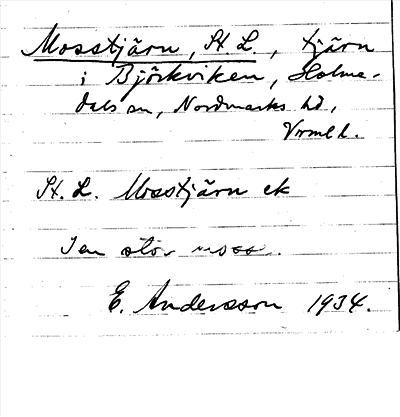 Mosstjärn, St. L., tjärn
i Björkviken, Holme-
dals sn, Nordmarks hd,
Vrml l.
St. L. Mosstjärn ek
I en stor mosse.
E. Andersson 1934.